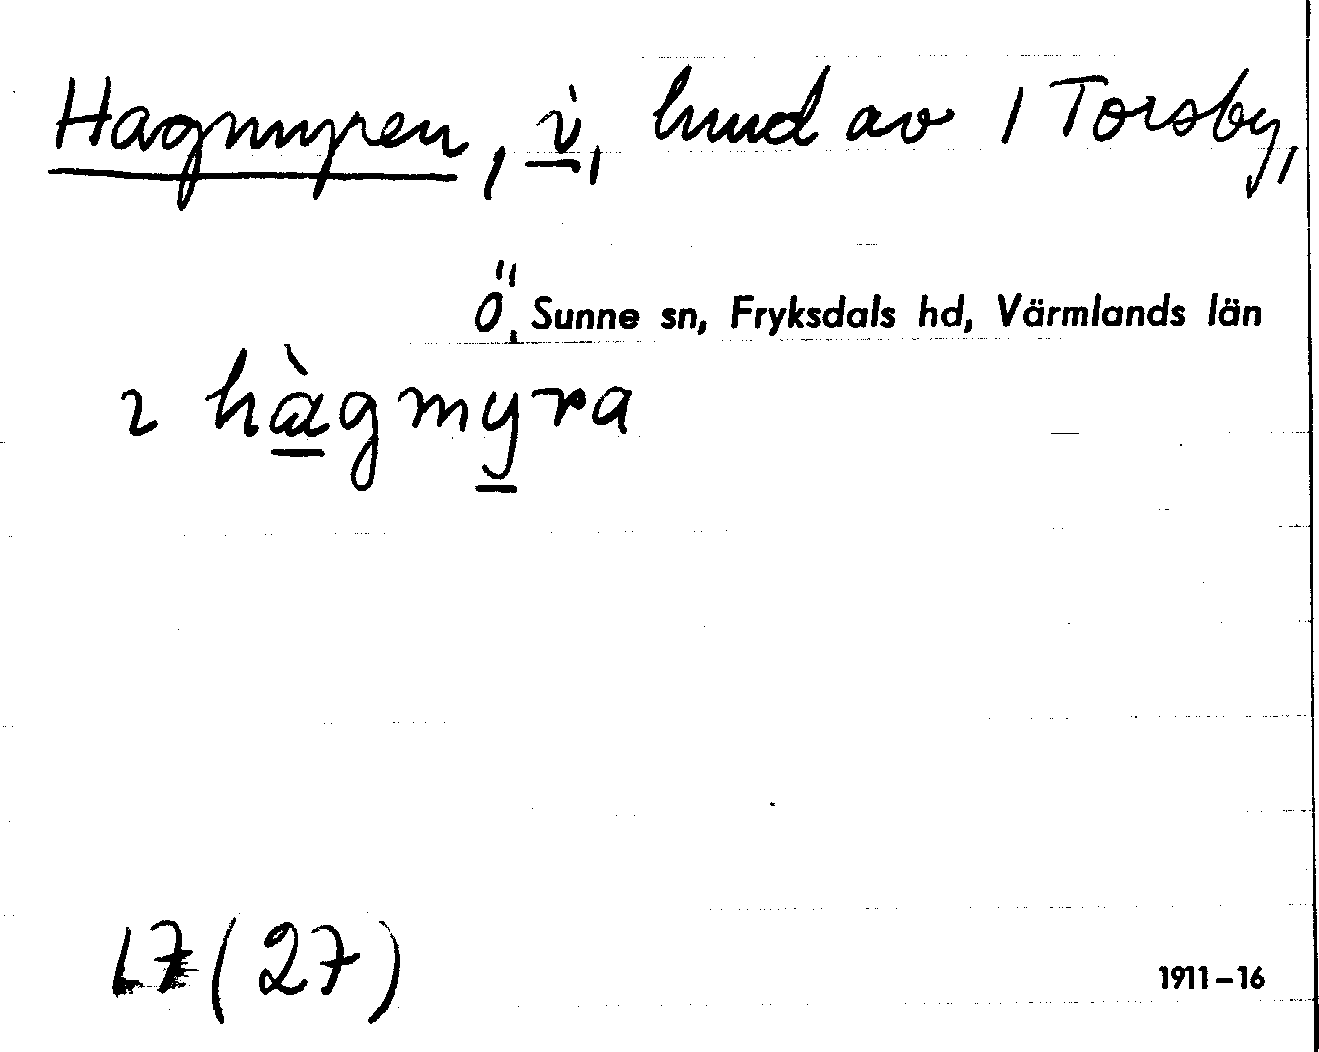 Hagmyren, i, hmd av 1 Torsby,
Ö. Sunne sn, Fryksdals hd, Värmlands län
2 hàgmyra
17 (27)
1911–16